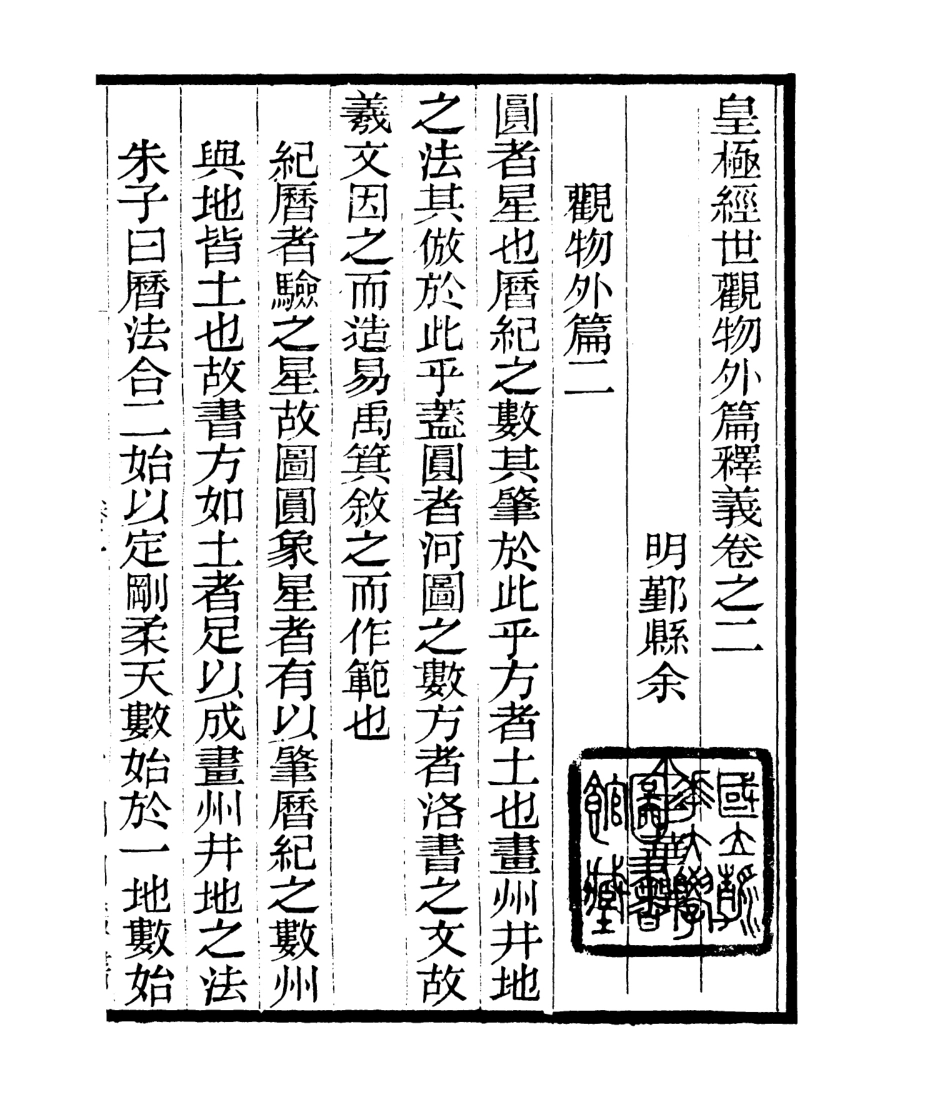 皇極經世觀物外篇釋義卷之二
明鄞縣余
觀物外篇二
圓者星也曆紀之數其肇於此乎方者土也畫州井地
之法其倣於此乎蓋圓者河圖之數方者洛書之文故
羲文因之而造易禹箕敘之而作範也
紀曆者驗之星故圖圓象星者有以肇曆紀之數州
與地皆土也故書方如土者足以成畫州井地之法
朱子曰曆法合二始以定剛柔天數始於一地數始